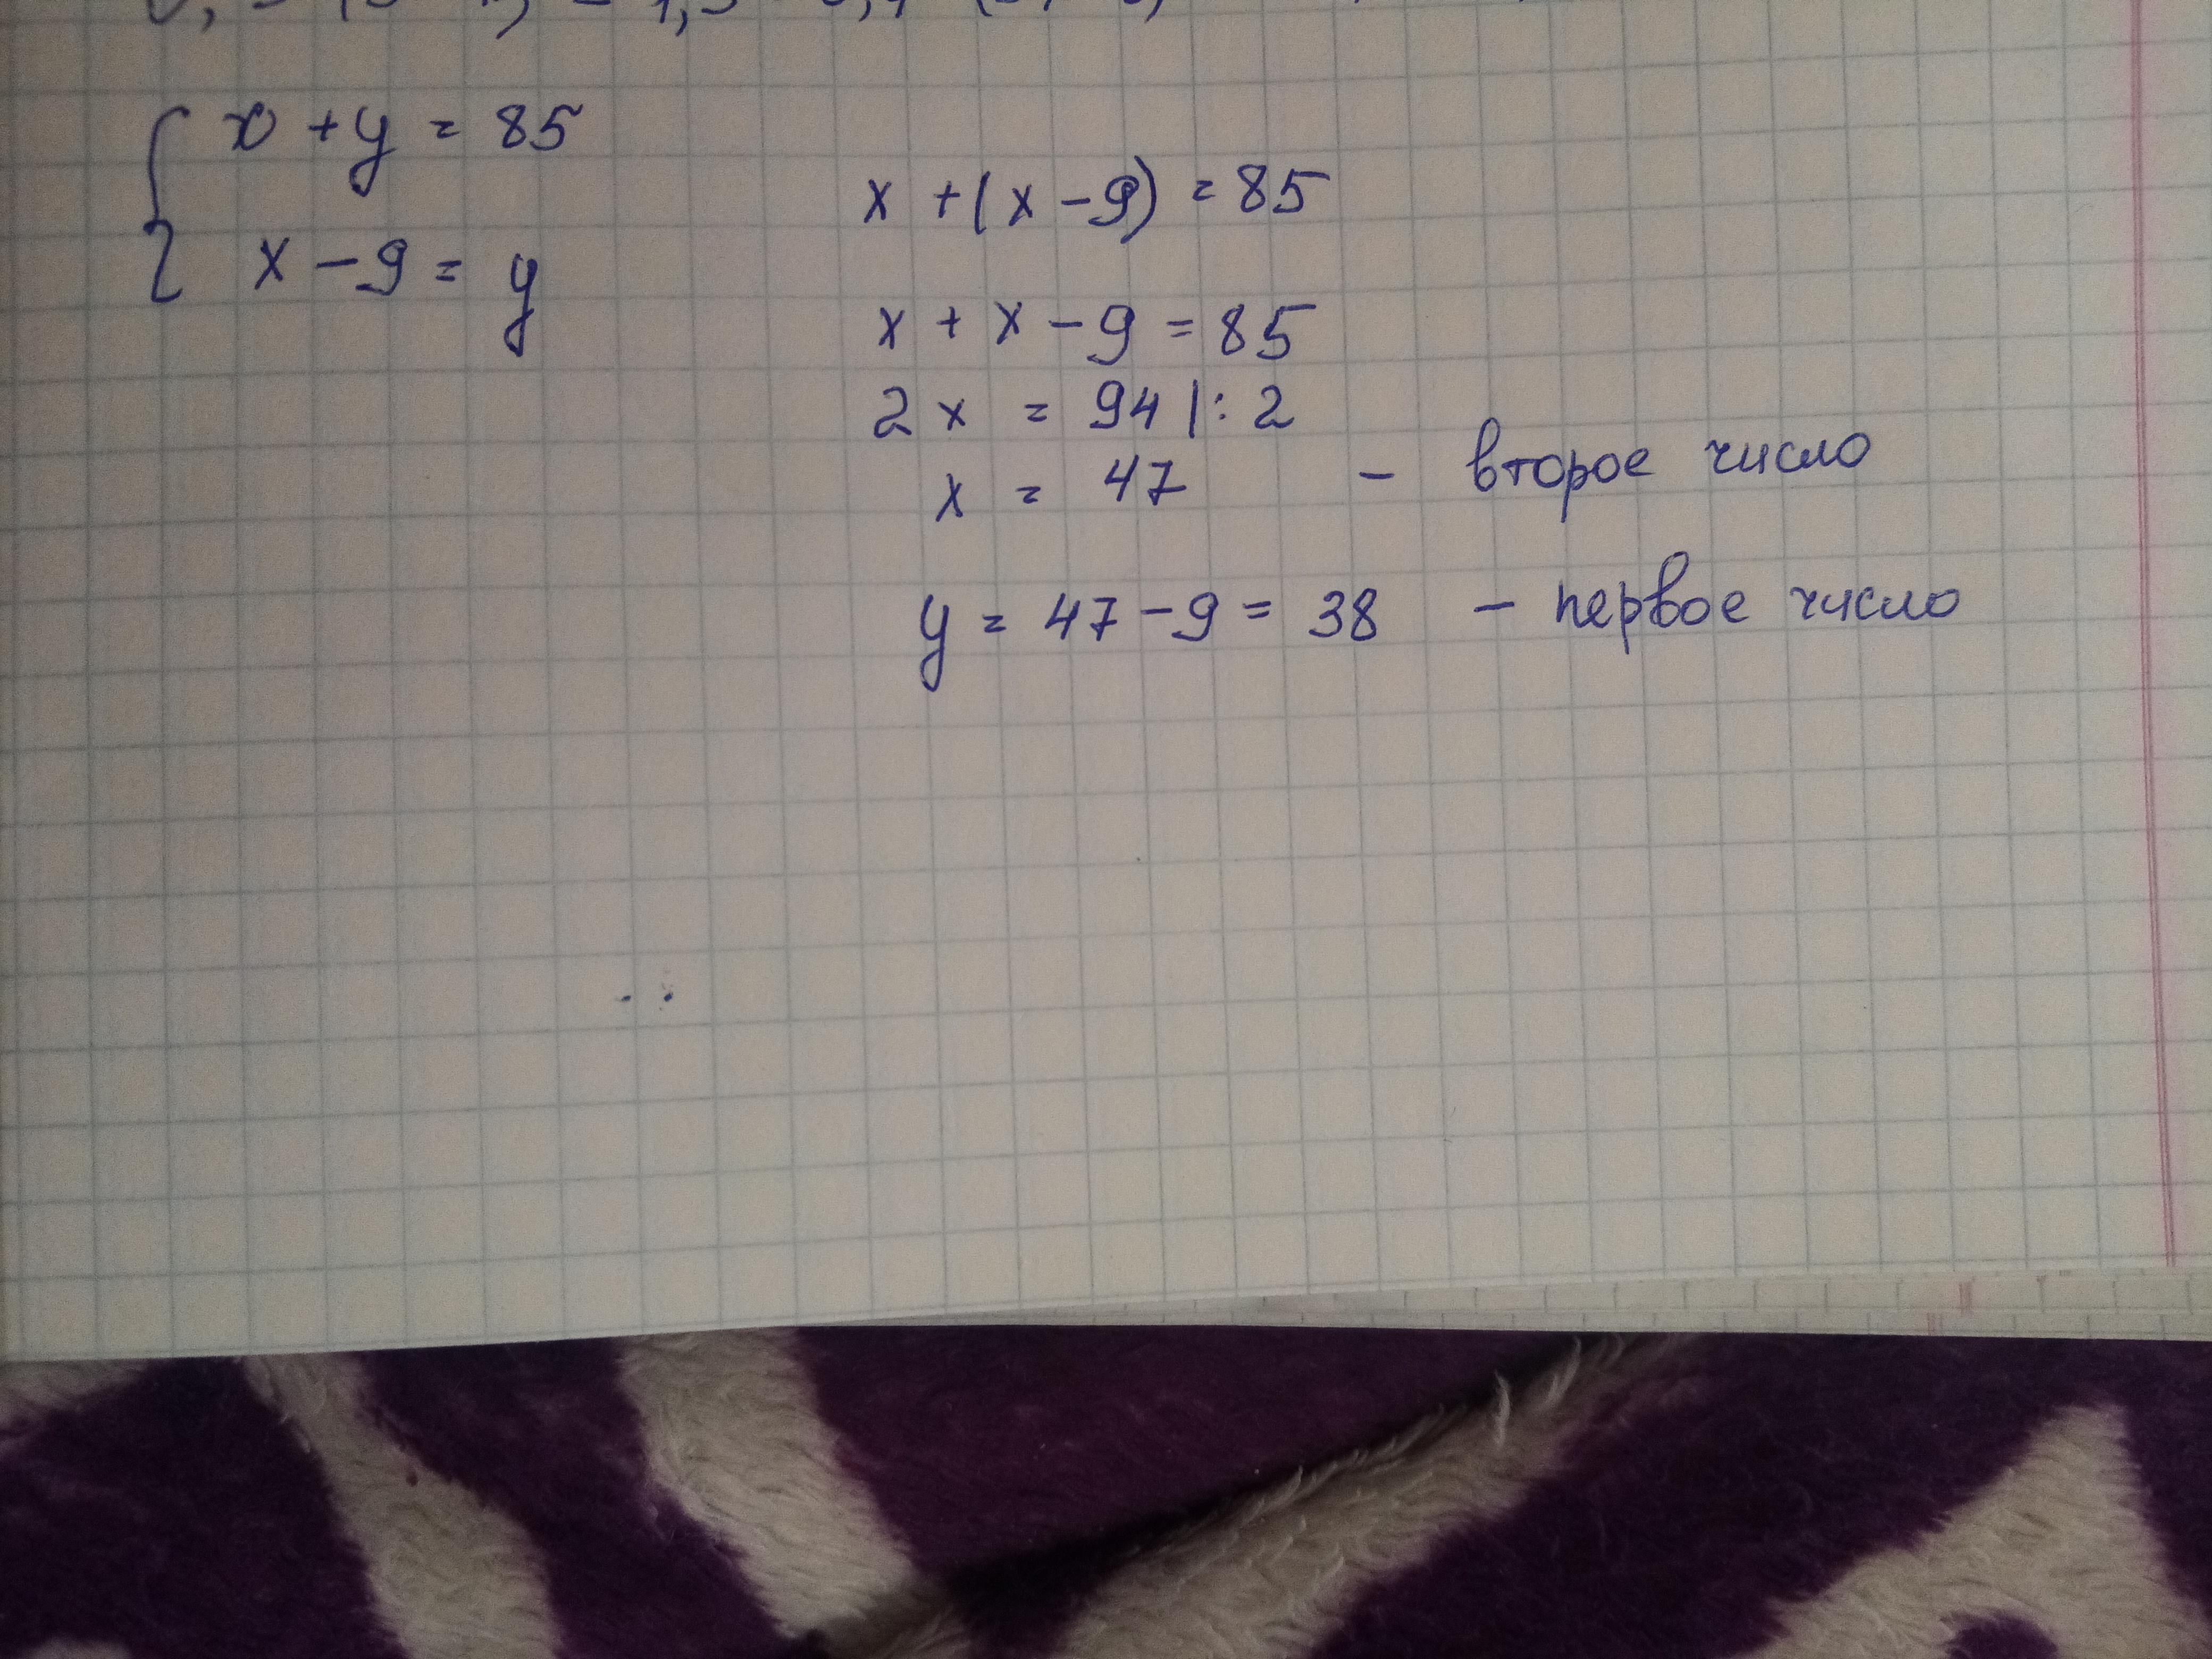 x + y = 85
x - 9 = y
x + (x - 9) = 85
x + x - 9 = 85
2x = 94 |: 2
x = 47 - второе число
y = 47 - 9 = 38 - первое число